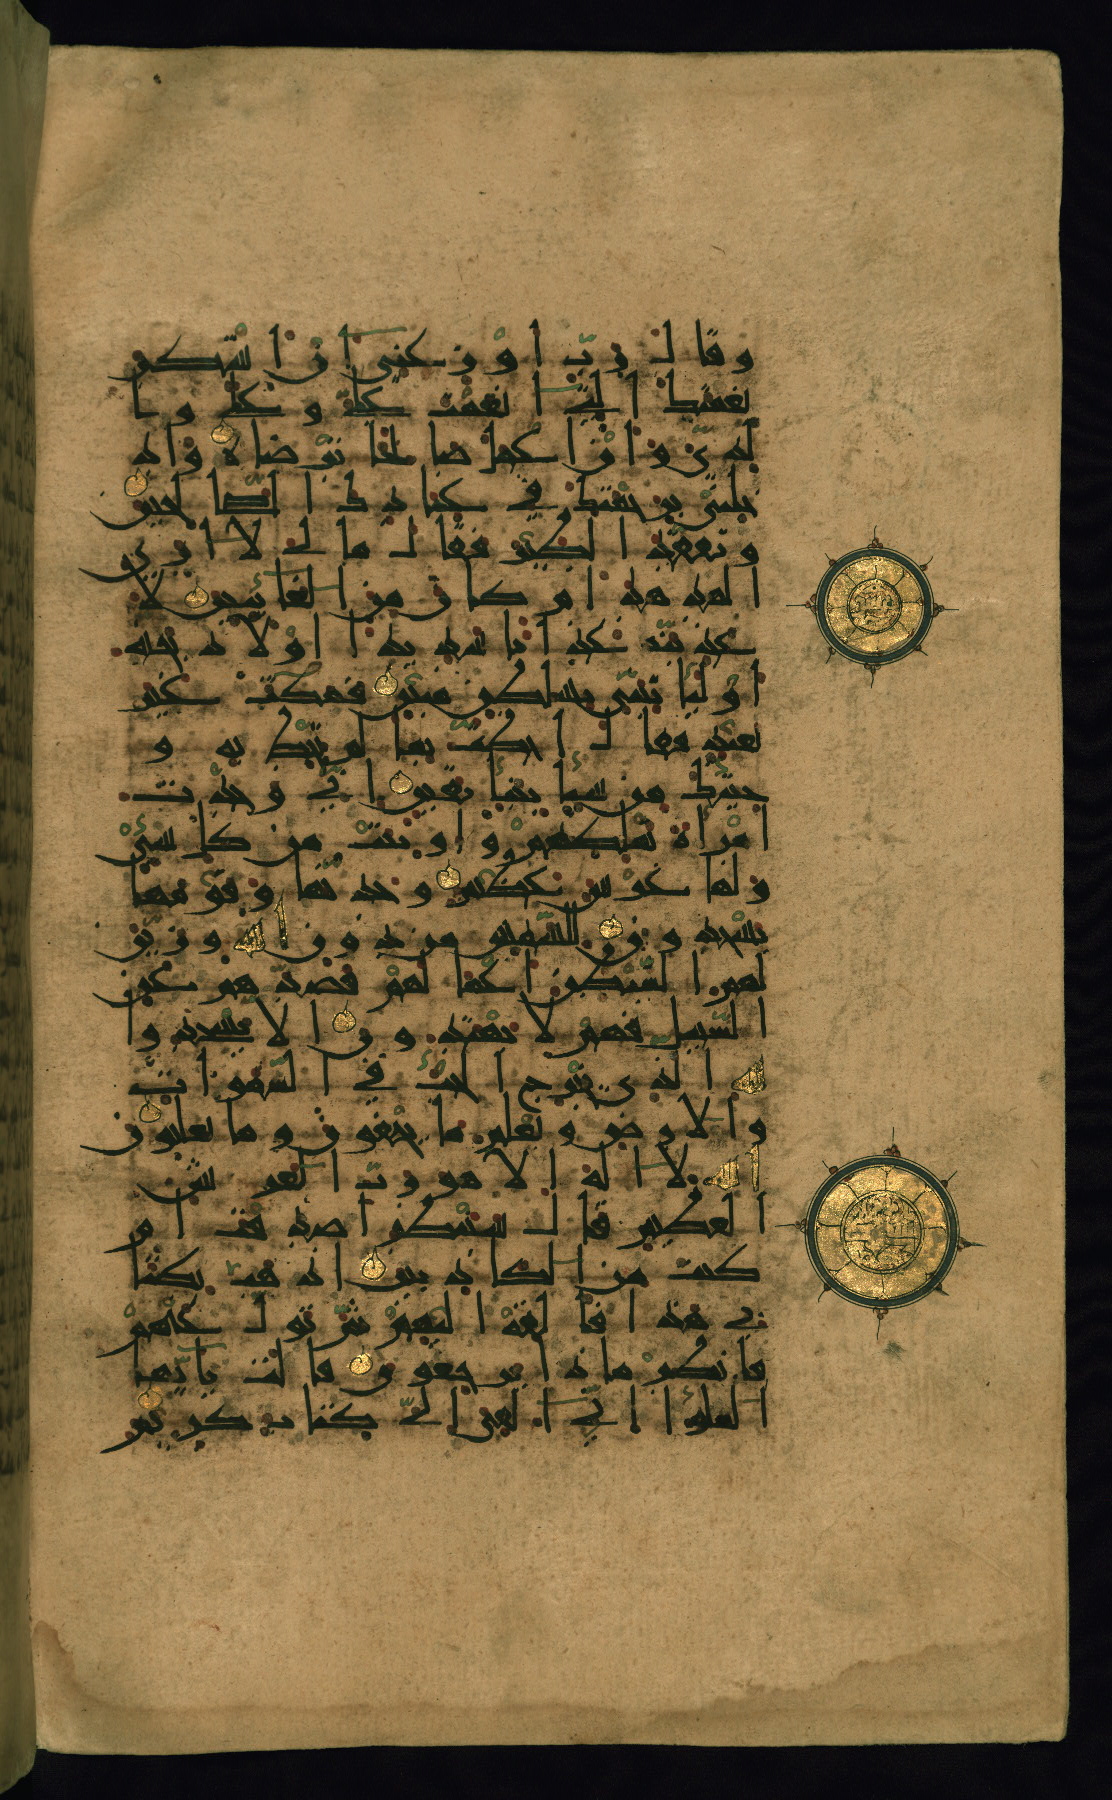 وقال رب اوزعني ان اشكر
نعمتك التي انعمت علي وعلى وا
لدي وان اعمل صالحا ترضاه واد
خلني برحمتك في عبادك الصالحين
وتفقد الطير فقال ما لي لا ارى
الهدهد ام كان من الغائبين لا
عذبنه عذابا شديدا او لاذبحنه
او ليأتيني بسلطن مبين فمكث غير
بعيد فقال احطت بما لم تحط به و
جئتك من سبإ بنبإ يقين اني وجدت
امرأة تملكهم واوتيت من كل شيء
ولها عرش عظيم وجدتها وقومها
يسجدون للشمس من دون الله وزين
لهم الشيطن اعمالهم فصدهم عن
السبيل فهم لا يهتدون الا يسجدوا
لله الذي يخرج الخبء في السموات
والارض ويعلم ما يخفون وما يعلنون
الله لا اله الا هو رب العرش
العظيم قال سننظر اصدقت ام
كنت من الكاذبين اذهب بكتا
بي هذا فالقه اليهم ثم تول عنهم
فانظر ماذا يرجعون قالت يايها
الملؤا اني القي الي كتاب كريم